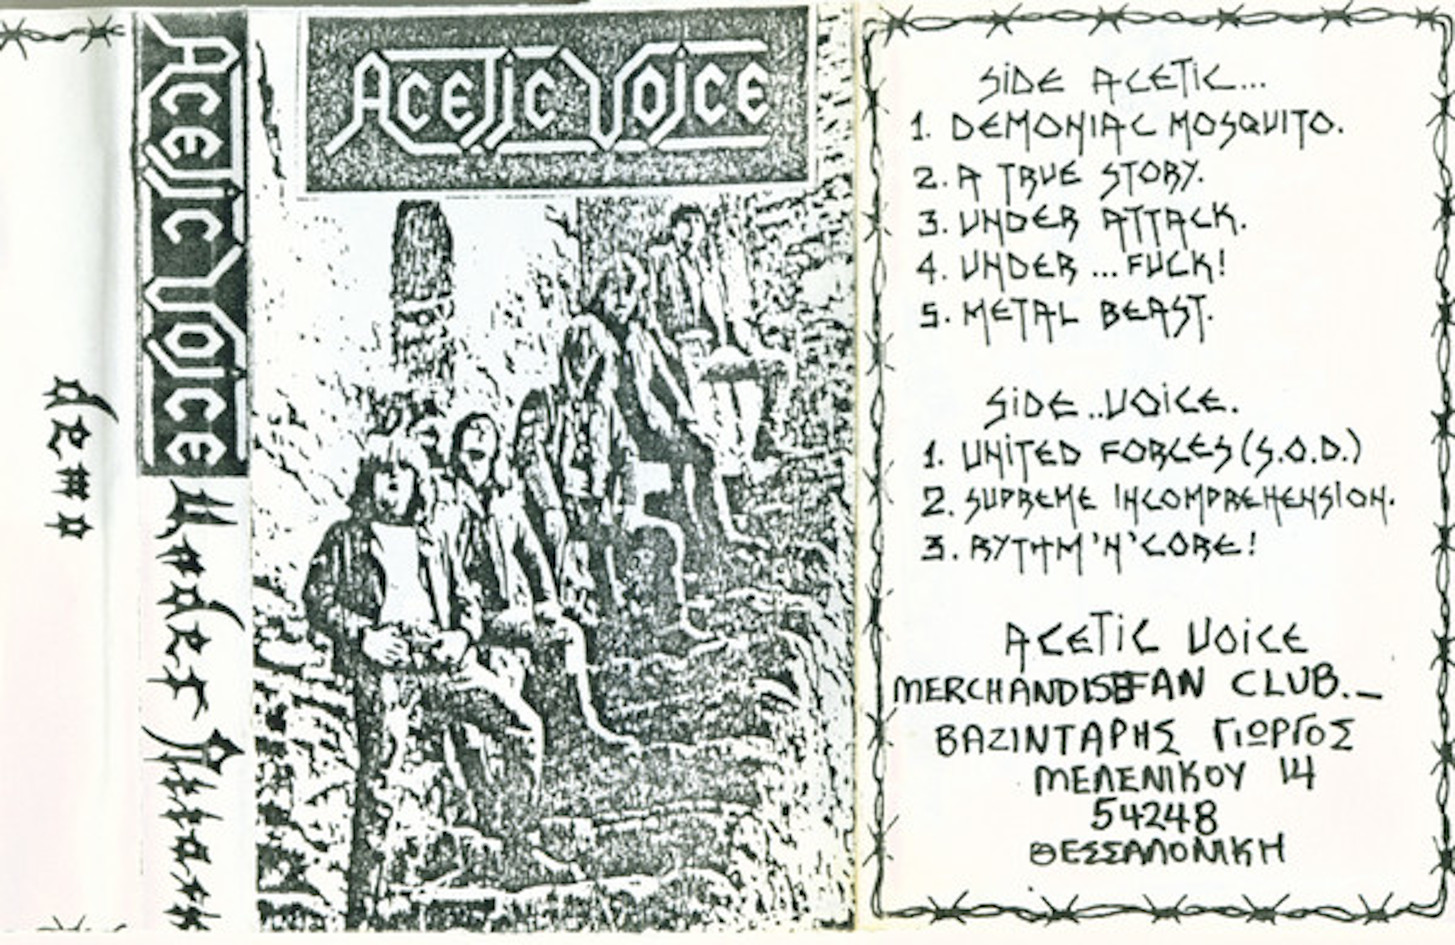 demo
Acetic Voice
Under Attack
Acetic Voice
SiDE ACETiC...
1. DEMONiAC MOSQUiTO.
2. A TRUE STORY.
3. UNDER ATTACK.
4. UNDER ... FUCK!
5. METAL BEAST.
SiDE ..VOiCE.
1. UNiTED FORCES (S.O.D.)
2. SUPREME INCOMPREHENSiON.
3. RYTHM'N'CORE!
ACETiC VOiCE
MERCHANDISE FAN CLUB._
ΒΑΖΙΝΤΑΡΗΣ ΓΙΩΡΓΟΣ
ΜΕΛΕΝΙΚΟΥ 14
54248
ΘΕΣΣΑΛΟΝΙΚΗ